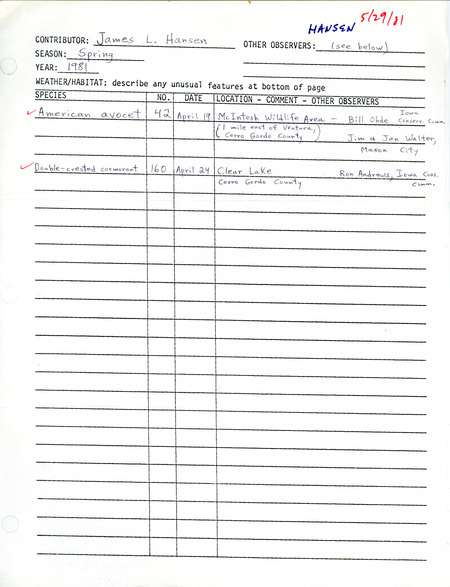 HANSEN 5/29/81
CONTRIBUTOR: James L. Hansen OTHER OBSERVERS: (see below)
SEASON: Spring
YEAR: 1981
WEATHER/HABITAT: describe any unusual features at bottom of page
SPECIES NO. DATE LOCATION - COMMENT - OTHER OBSERVERS
American avocet 42 April 19 McIntosh Wildlife Area - Bill Ohde Iowa Conserv. Comm.
(1 mile east of Ventura, Jim & Jan Walter,
Cerro Gordo County) Mason City
Double-crested cormorant 160 April 24 Clear Lake Ron Andrews, Iowa Cons.
Cerro Gordo County Comm.